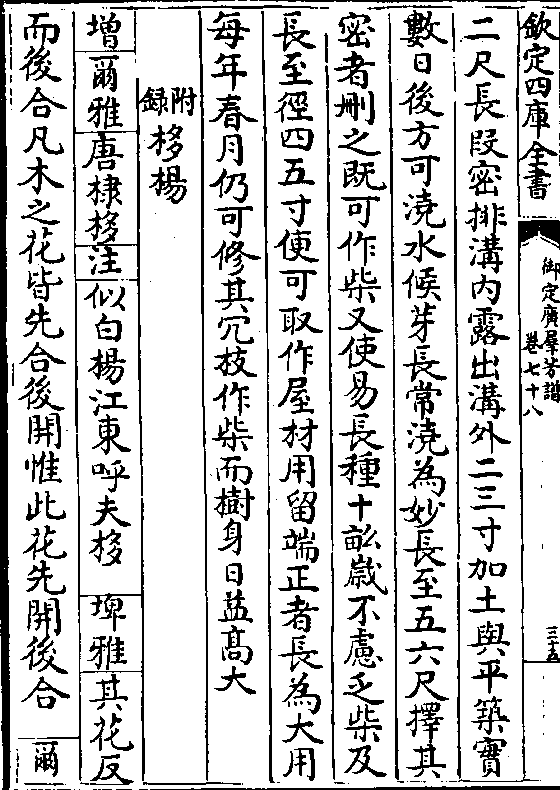 欽定四庫全書
御定廣羣芳譜
卷七十八
三十五
二尺長段密排溝内露出溝外二三寸加土與平築實
數日後方可澆水候芽長常澆為妙長至五六尺擇其
密者刪之既可作柴又使易長種十畝嵗不慮乏柴及
長至徑四五寸便可取作屋材用留端正者長為大用
每年春月仍可修其冗枝作柴而樹身日益髙大
附錄
栘楊
增爾雅唐棣栘注似白楊江東呼夫栘 埤雅其花反
而後合凡木之花皆先合後開惟此花先開後合 爾